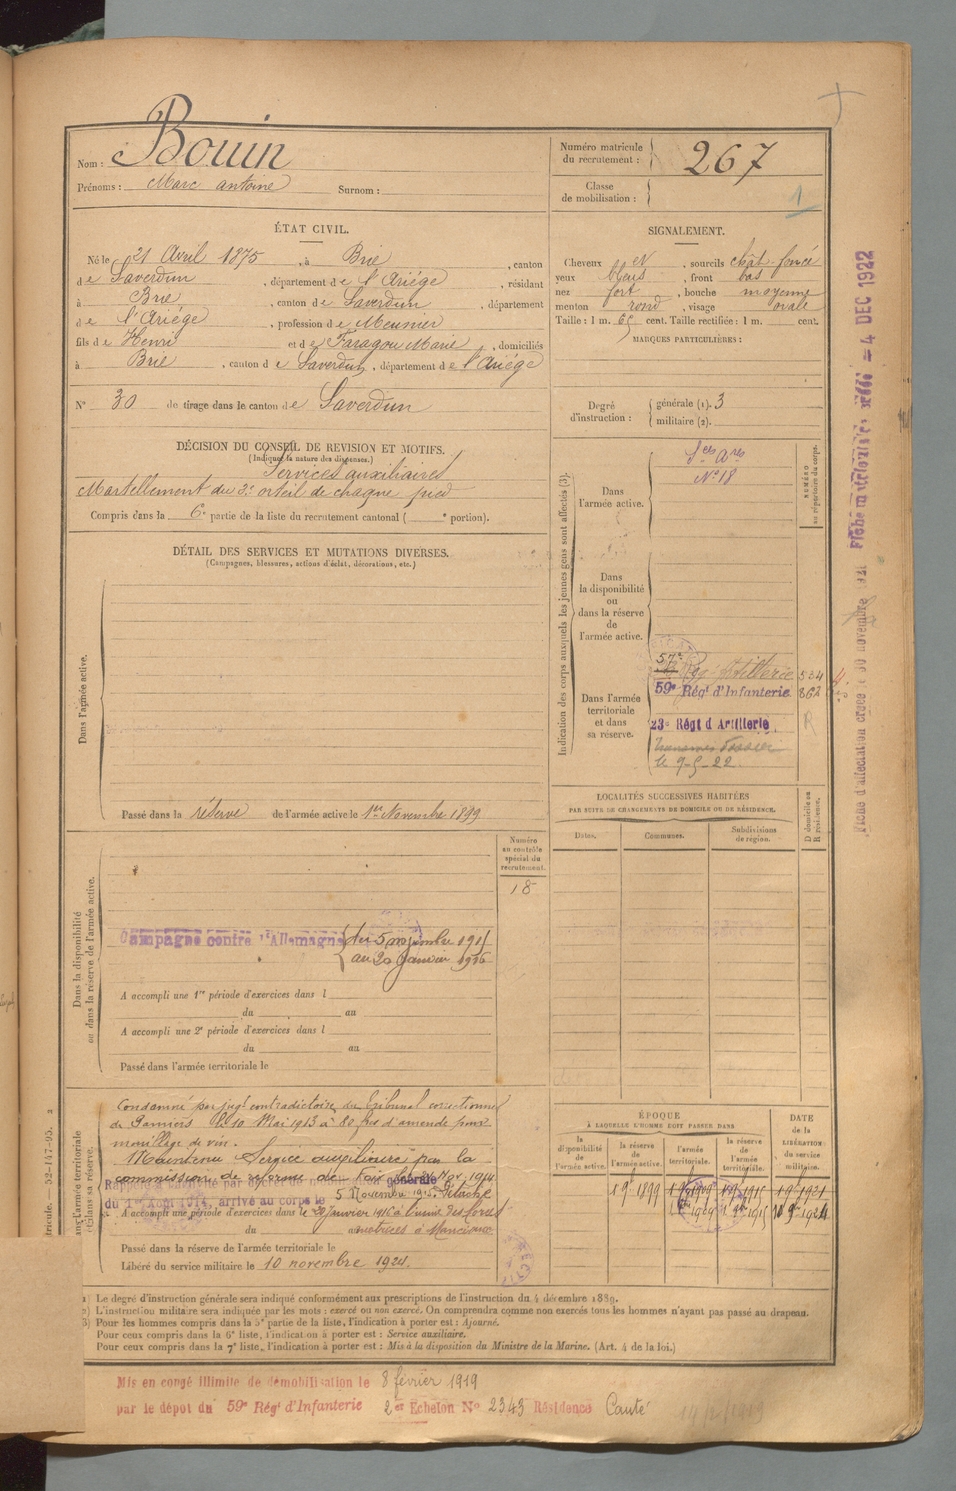 Nom : Bouin
Prénoms : Marc antoine Surnom :
Numéro matricule
du recrutement : 267
Classe
de mobilisation :
1
ÉTAT CIVIL.
Né le 21 Avril 1875, à Brie, canton
de Saverdun, département de l'Ariége, résidant
à Brie, canton de Saverdun, département
de l'Ariége, profession de Meunier
fils de Henri et de Faragou Marie, domiciliés
à Brie, canton de Saverdun, département de l'Ariége
N° 30 de tirage dans le canton de Saverdun
SIGNALEMENT.
Cheveux et, sourcils chât. foncé
yeux bleus, front bas
nez fort, bouche moyenne
menton rond, visage ovale
Taille : 1 m. 65 cent. Taille rectifiée : 1 m. cent.
MARQUES PARTICULIÈRES :
Degré
d'instruction :
générale (1). 3
militaire (2).
DÉCISION DU CONSEIL DE REVISION ET MOTIFS.
(Indiquer la nature des dispenses.)
Services auxiliaires
Martellement du 2e orteil de chaque pied
Compris dans la 6e partie de la liste du recrutement cantonal ( e portion).
DÉTAIL DES SERVICES ET MUTATIONS DIVERSES.
(Campagnes, blessures, actions d'éclat, décorations, etc.)
Dans l'armée active.
Passé dans la réserve de l'armée active le 1er Novembre 1899
Indication des corps auxquels les jeunes gens sont affectés (3).
NUMÉRO
au répertoire du corps.
Dans
l'armée active.
Sces Ares
N° 18
Dans
la disponibilité
ou
dans la réserve
de
l'armée active.
Dans l'armée
territoriale
et dans
sa réserve.
57e
Régt Artillerie 534
59e Régt d'Infanterie 862
23e Régt d'Artillerie
R
le 9-5-22
Fiche d'affectation créée le 30 novembre 1921
= 4 DEC 1922
LOCALITÉS SUCCESSIVES HABITÉES
PAR SUITE DE CHANGEMENTS DE DOMICILE OU DE RÉSIDENCE.
Dates.
Communes.
Subdivisions
de région.
D domicile ou
R résidence.
Dans la disponibilité
ou dans la réserve de l'armée active.
Numéro
au contrôle
spécial du
recrutement.
18
Campagne contre l'Allemagne du 5 novembre 1915
au 20 Janvier 1916
A accompli une 1re période d'exercices dans l
du au
A accompli une 2e période d'exercices dans l
du au
Passé dans l'armée territoriale le
Condamné par jugt contradictoire du Tribunal correctionnel
de Pamiers le 10 Mai 1913 à 80 frs d'amende pour
mouillage de vin.
Maintenu Service auxiliaire par la
commission de réforme de Foix du 24 Nov. 1914
générale
du 1er Août 1914, arrivé au corps le 5 Novembre 1915. Détaché
A accompli une période d'exercices dans le 20 Janvier 1916 à l'usine des forces
du motrices à Mancioux
Passé dans la réserve de l'armée territoriale le
Libéré du service militaire le 10 novembre 1924.
ÉPOQUE
À LAQUELLE L'HOMME DOIT PASSER DANS
la
disponibilité
de
l'armée active.
la réserve
de
l'armée active.
l'armée
territoriale.
la réserve
de
l'armée
territoriale.
DATE
de la
LIBÉRATION
du service
militaire.
1 9e 1899 1 9e 1909 1 9e 1915 1 9e 1921
10 9e 1924
(1) Le degré d'instruction générale sera indiqué conformément aux prescriptions de l'instruction du 4 décembre 1889.
(2) L'instruction militaire sera indiquée par les mots : exercé ou non exercé. On comprendra comme non exercés tous les hommes n'ayant pas passé au drapeau.
(3) Pour les hommes compris dans la 5e partie de la liste, l'indication à porter est : Ajourné.
Pour ceux compris dans la 6e liste, l'indication à porter est : Service auxiliaire.
Pour ceux compris dans la 7e liste, l'indication à porter est : Mis à la disposition du Ministre de la Marine. (Art. 4 de la loi.)
Mis en congé illimité de démobilisation le 8 février 1919
par le dépôt du 59e Régt d'Infanterie 2e Echelon N° 2343 Résidence Canté